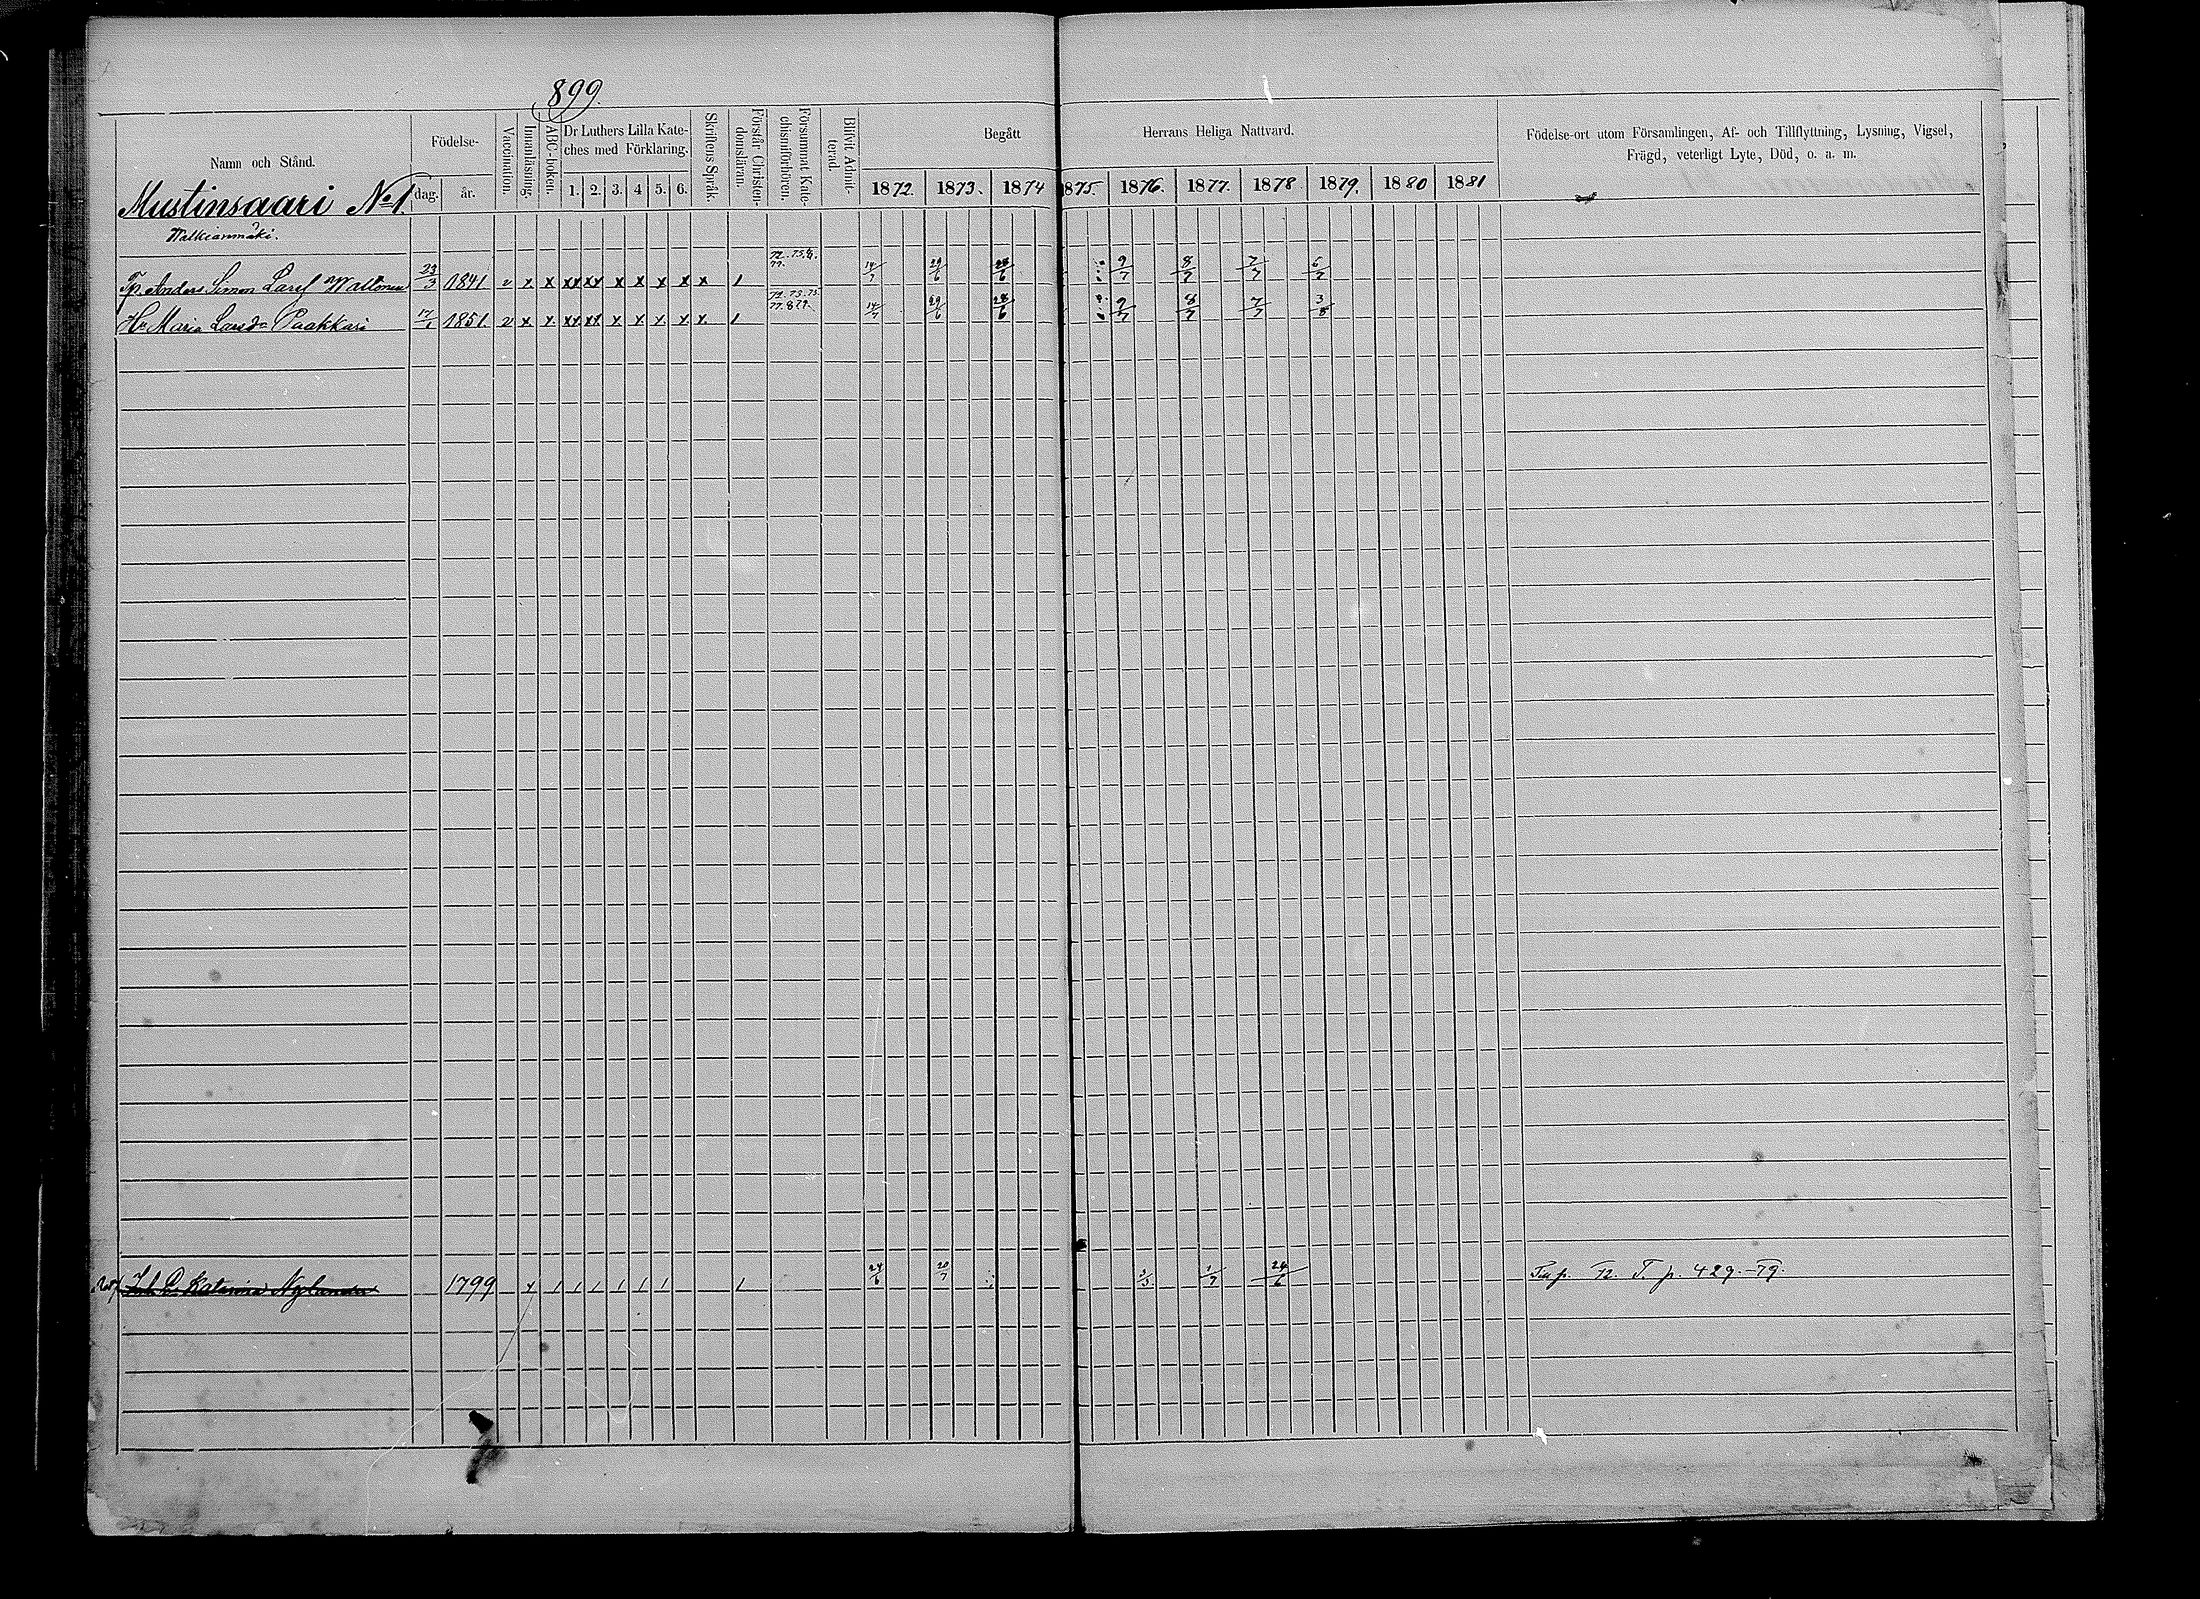 899.
Namn och Stånd.
Födelse-
dag.
år.
Vaccination.
Innanläsning.
ABC-boken.
Dr Luthers Lilla Kate-
ches med Förklaring.
1. 2. 3. 4 5. 6.
Skriftens Språk.
Förstår Christen-
domsläran.
Försummat Kate-
chismiförhören.
Blifvit Admit-
terad.
Begått Herrans Heliga Nattvard.
1872. 1873. 1874 1875. 1876. 1877. 1878 1879. 1880 1881
Födelse-ort utom Församlingen, Af- och Tillflyttning, Lysning, Vigsel,
Frägd, veterligt Lyte, Död, o. a. m.
Mustinsaari No 1.
Walkianmäki.
Tp. Anders Simon Larsf Waltonen 23/3 1841 v x x xx xx x x x x x 1 14/7 29/6 28/6 9/7 8/7 7/7 6/7
Hu Maria Larsdr Paakkari 17/1 1851. v x x xx xx x x x x x. 1 14/7 29/6 28/6 9/7 8/7 7/7 3/8
Katarina Nylander 1799 x 1 1 1 1 1 1 1 24/6 20/7 1/7 24/6 p. 429.-79.